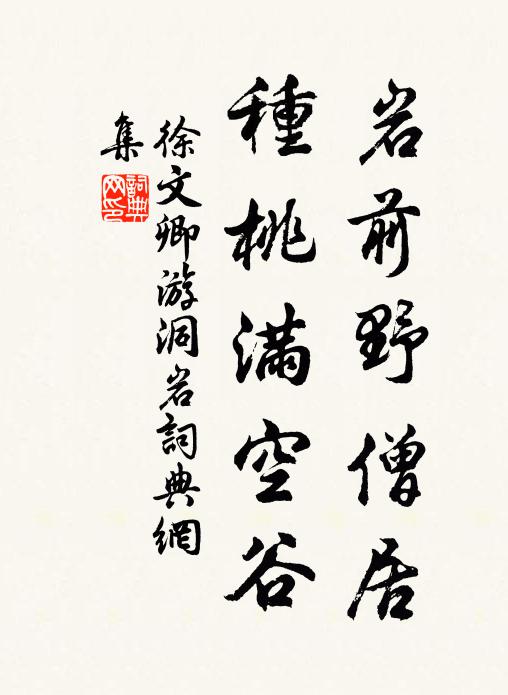 岩前野僧居
種桃滿空谷
徐文卿游洞岩詞典網
集
詞典
网印